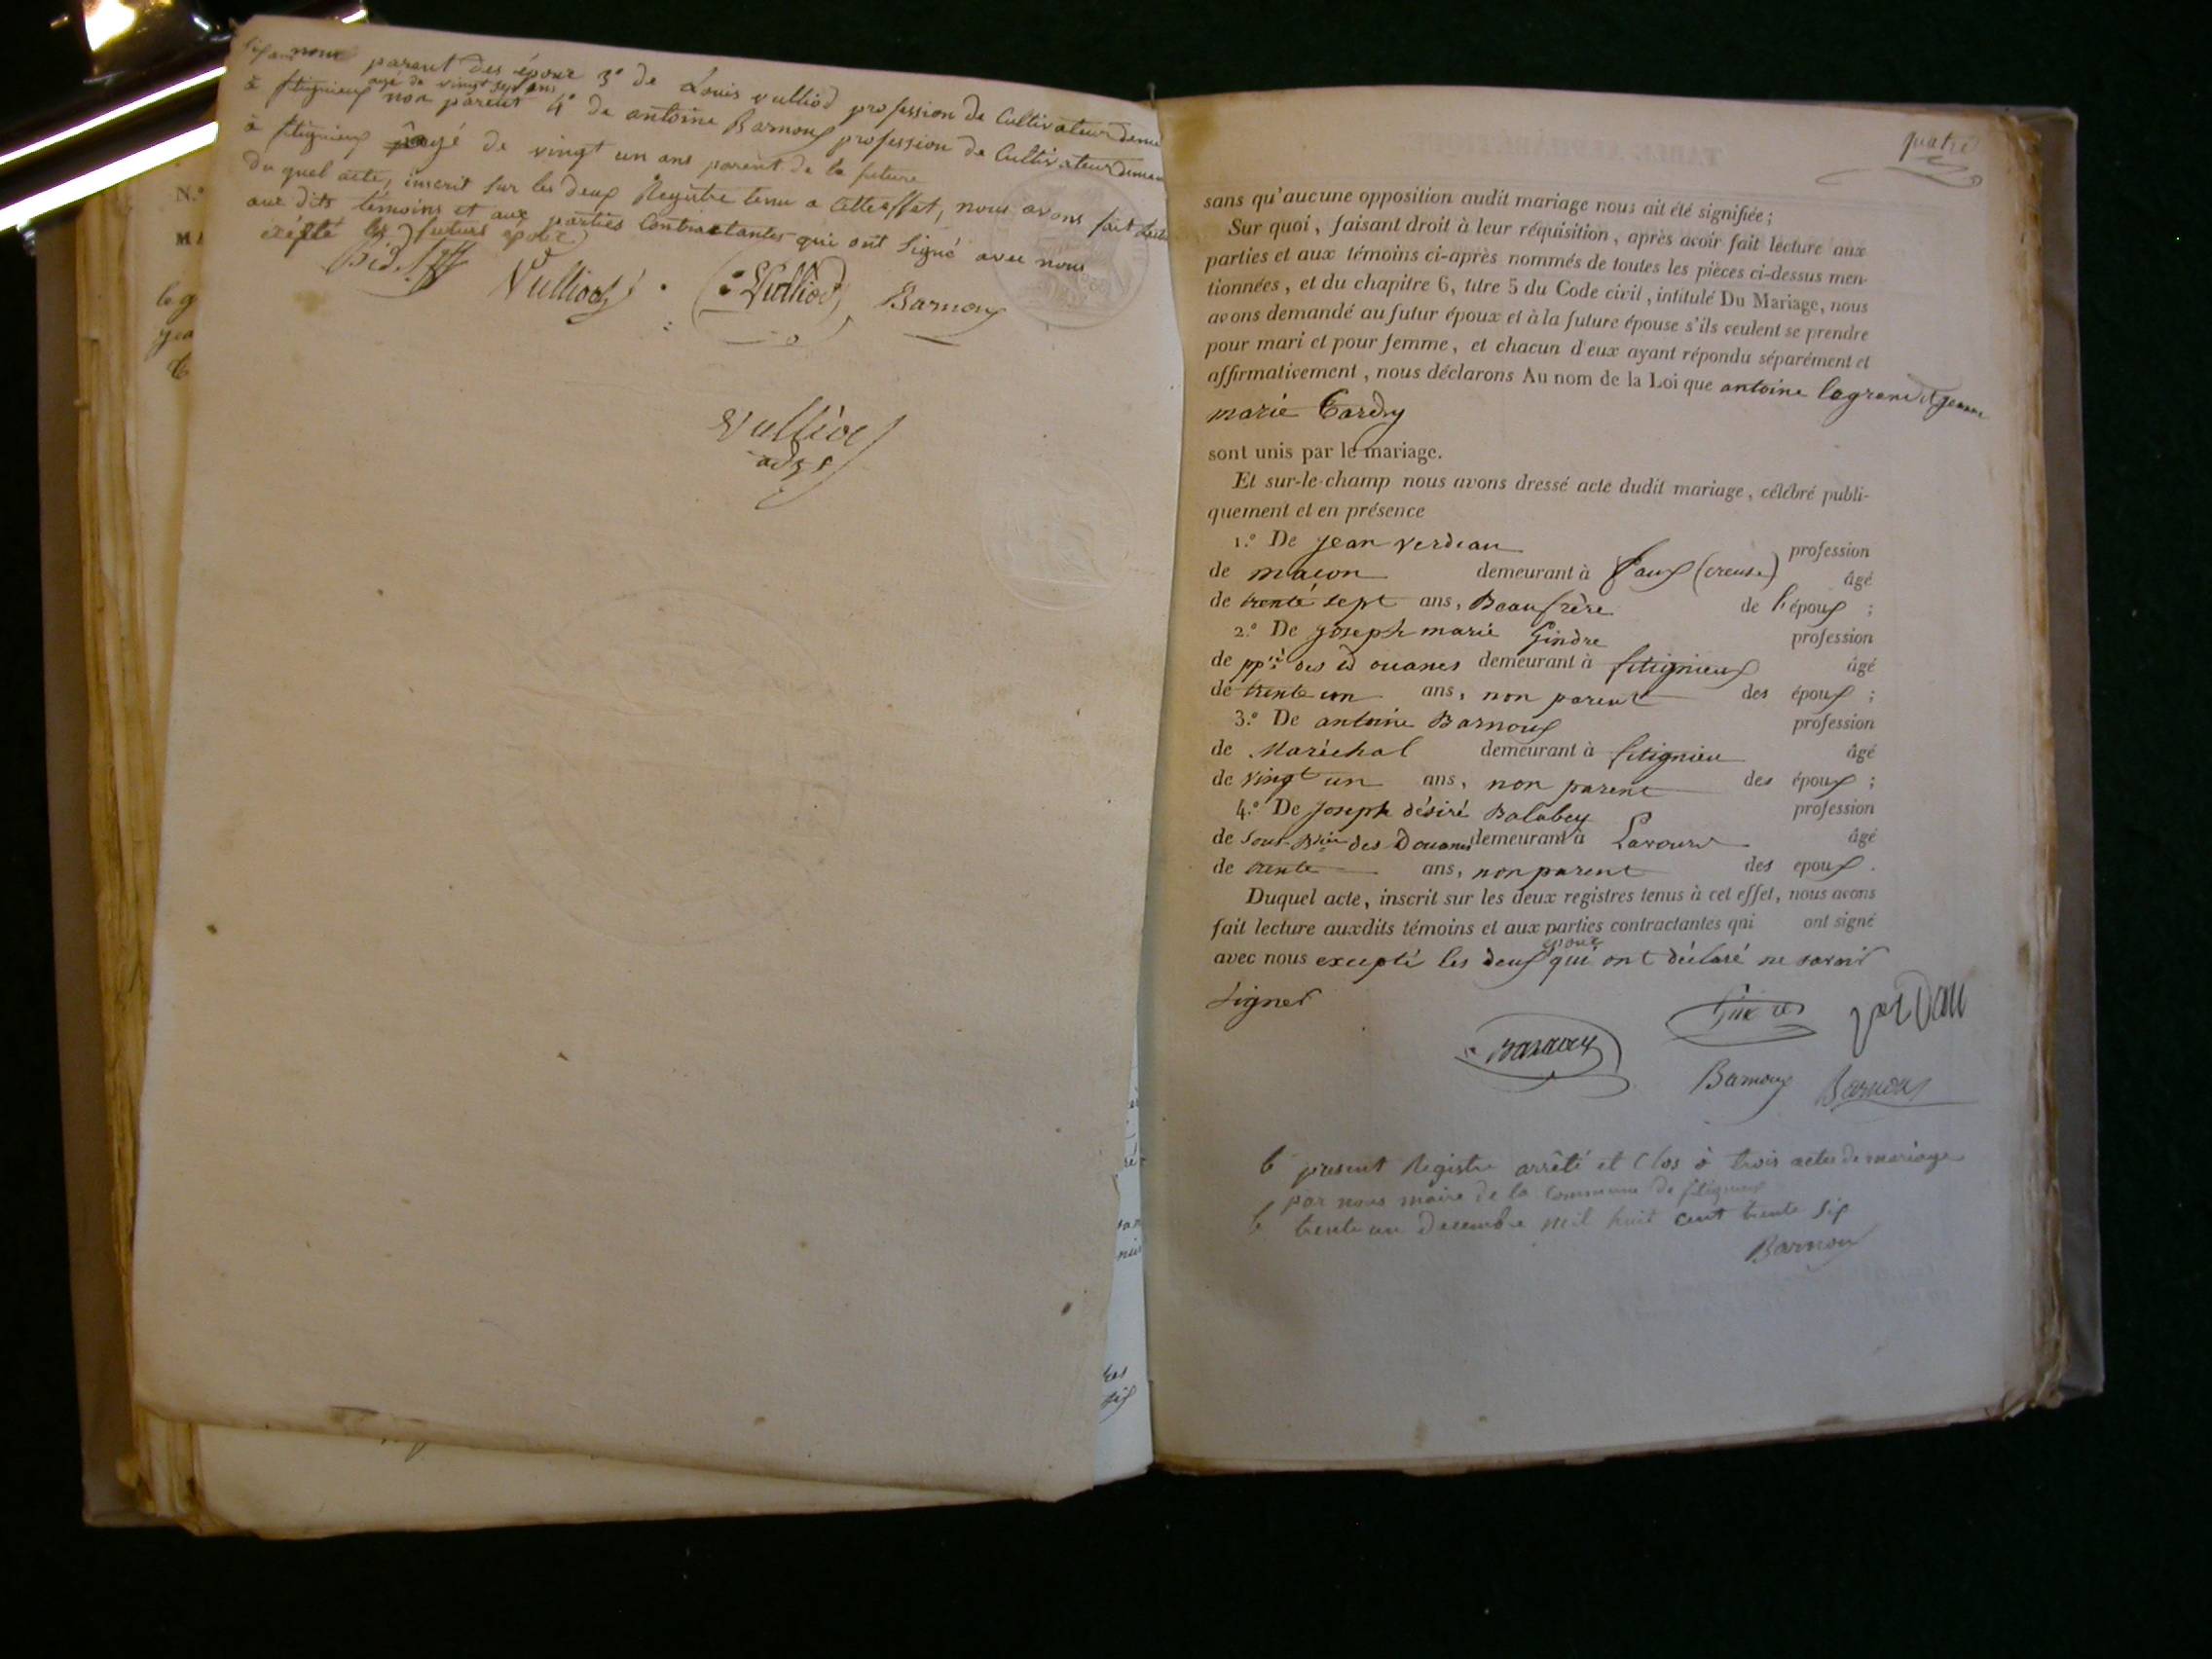 non parent des époux 3° de Louis vulliod profession de Cultivateur
à fitignieux âgé de vingt sept ans non parent 4° de antoine Barnoux profession de Cultivateur
à fitignieux âgé de vingt un ans parent de la future
du quel acte, inscrit sur les deux Registre tenu a cette effet, nous avons fait
aux dits témoins et aux parties Contractantes qui ont signé avec nous
les futurs époux
Vulliod Vulliod Barnoux
Vulliod
adjt
N.°
quatre
sans qu'aucune opposition audit mariage nous ait été signifiée;
Sur quoi, faisant droit à leur réquisition, après avoir fait lecture aux
parties et aux témoins ci-après nommés de toutes les pièces ci-dessus men-
tionnées, et du chapitre 6, titre 5 du Code civil, intitulé Du Mariage, nous
avons demandé au futur époux et à la future épouse s'ils veulent se prendre
pour mari et pour femme, et chacun d'eux ayant répondu séparément et
affirmativement, nous déclarons Au nom de la Loi que antoine legrand et jeanne
marie Tardy
sont unis par le mariage.
Et sur-le-champ nous avons dressé acte dudit mariage, célébré publi-
quement et en présence
1.° De jean verdeau profession
de maçon demeurant à faux (creuse) âgé
de trente sept ans, Beaufrère de l'époux ;
2.° De joseph marie Gindre profession
de ppré des Douanes demeurant à fitignieux âgé
de trente un ans, non parent des époux ;
3.° De antoine Barnoux profession
de Maréchal demeurant à fitignieu âgé
de vingt un ans, non parent des époux ;
4.° De joseph désiré Balabey profession
de Sous-Brier des Douanes demeurant à Lavours âgé
de trente ans, non parent des epoux .
Duquel acte, inscrit sur les deux registres tenus à cet effet, nous avons
fait lecture auxdits témoins et aux parties contractantes qui ont signé
avec nous excepté les deux époux qui ont déclaré ne savoir
signer
Verdau
Barnoux Barnoux
le present Registre arrêté et Clos à trois actes de mariage
par nous maire de la Commune de fitignieux
le trente un Decembre mil huit cent trente six
Barnoux